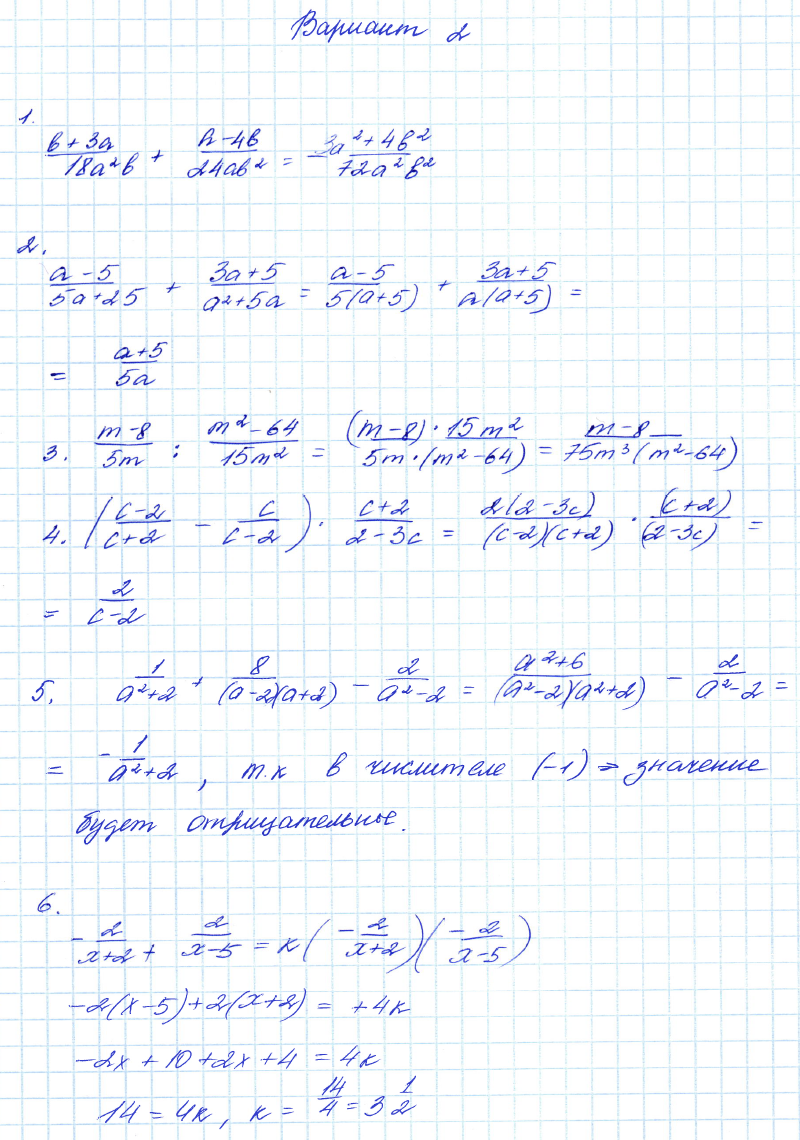 Вариант 2
1.
(в + 3а)/(18а²в) + (а - 4в)/(24ав²) = (-3а² + 4в²)/(72а²в²)
2.
(а - 5)/(5а + 25) + (3а + 5)/(а² + 5а) = (а - 5)/(5(а + 5)) + (3а + 5)/(а(а + 5)) =
= (а + 5)/(5а)
3. (m - 8)/(5m) : (m² - 64)/(15m²) = ((m - 8) · 15m²)/(5m · (m² - 64)) = (m - 8)/(75m³(m² - 64))
4. ((c - 2)/(c + 2) - c/(c - 2)) · (c + 2)/(2 - 3c) = (2(2 - 3c))/((c - 2)(c + 2)) · (c + 2)/(2 - 3c) =
= 2/(c - 2)
5. 1/(а² + 2) + 8/((а - 2)(а + 2)) - 2/(а² - 2) = (а² + 6)/((а² - 2)(а² + 2)) - 2/(а² - 2) =
= - 1/(а² + 2), т.к в числителе (-1) ⇒ значение
будет отрицательные.
6.
- 2/(x + 2) + 2/(x - 5) = к(- 2/(x + 2))(- 2/(x - 5))
-2(x - 5) + 2(x + 2) = +4к
-2x + 10 + 2x + 4 = 4к
14 = 4к, к = 14/4 = 3 1/2